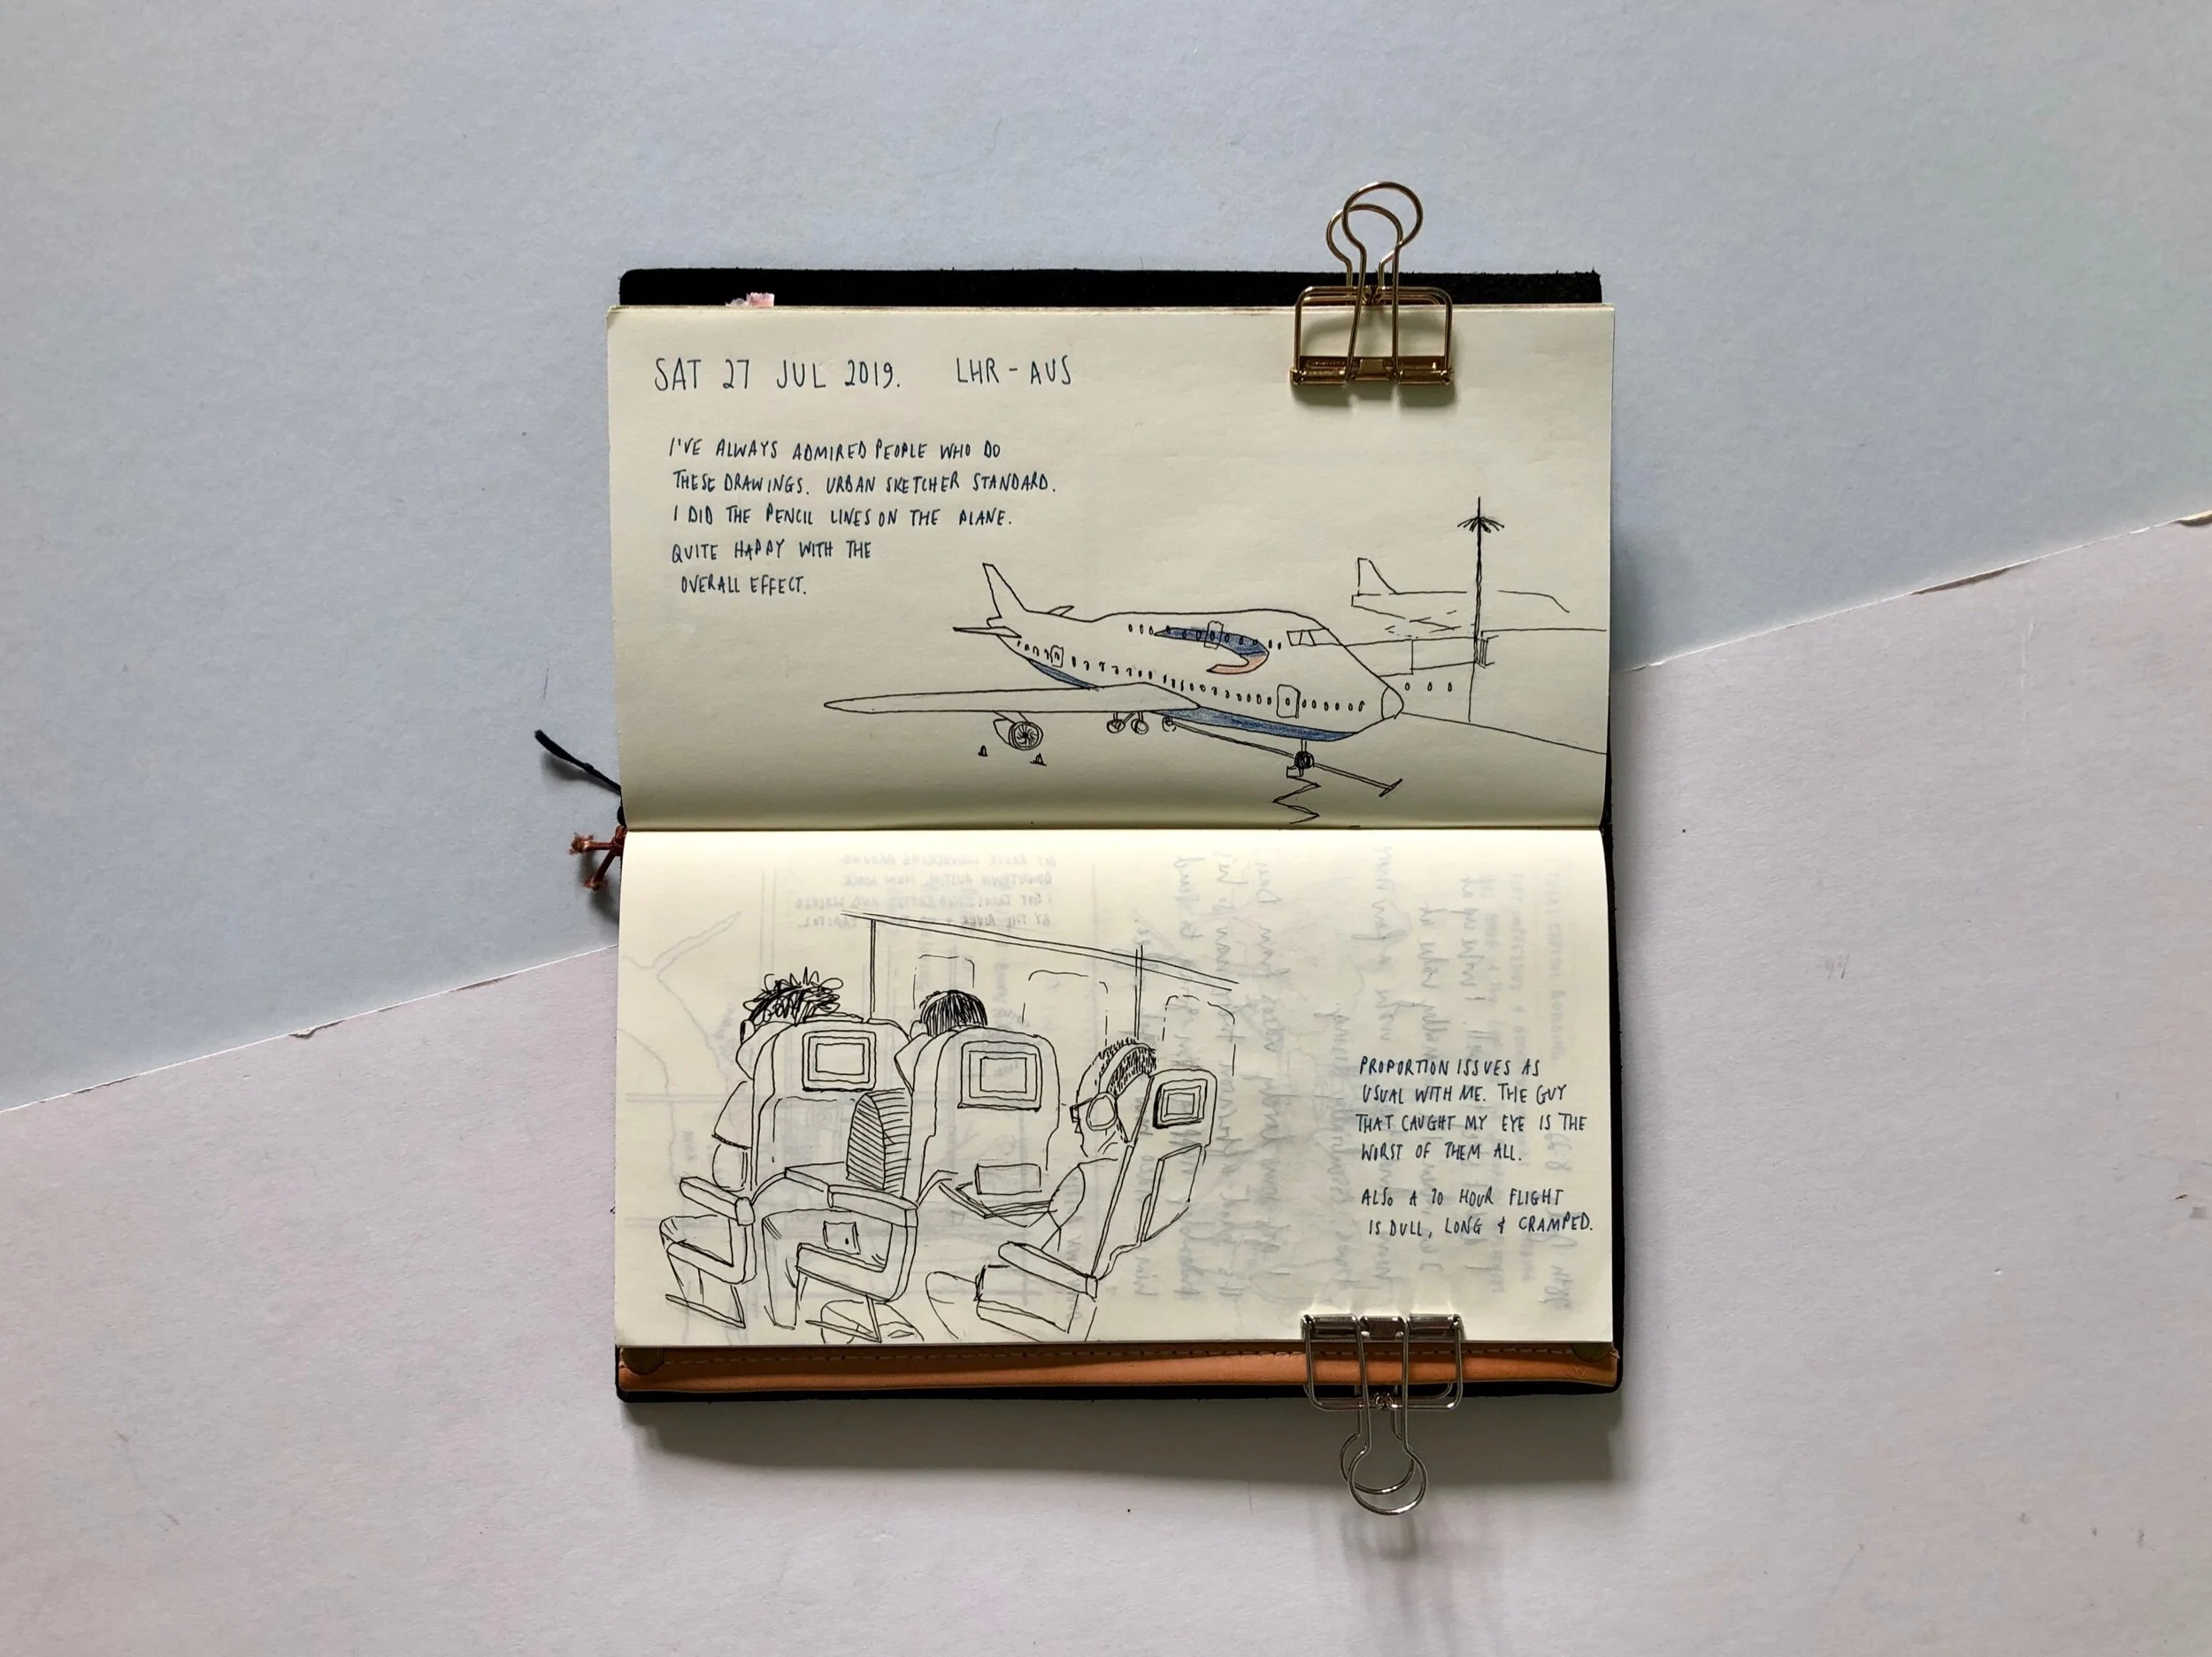 SAT 27 JUL 2019. LHR - AUS
I'VE ALWAYS ADMIRED PEOPLE WHO DO
THESE DRAWINGS. URBAN SKETCHER STANDARD.
I DID THE PENCIL LINES ON THE PLANE.
QUITE HAPPY WITH THE
OVERALL EFFECT.
PROPORTION ISSUES AS
USUAL WITH ME. THE GUY
THAT CAUGHT MY EYE IS THE
WORST OF THEM ALL.
ALSO A 10 HOUR FLIGHT
IS DULL, LONG & CRAMPED.